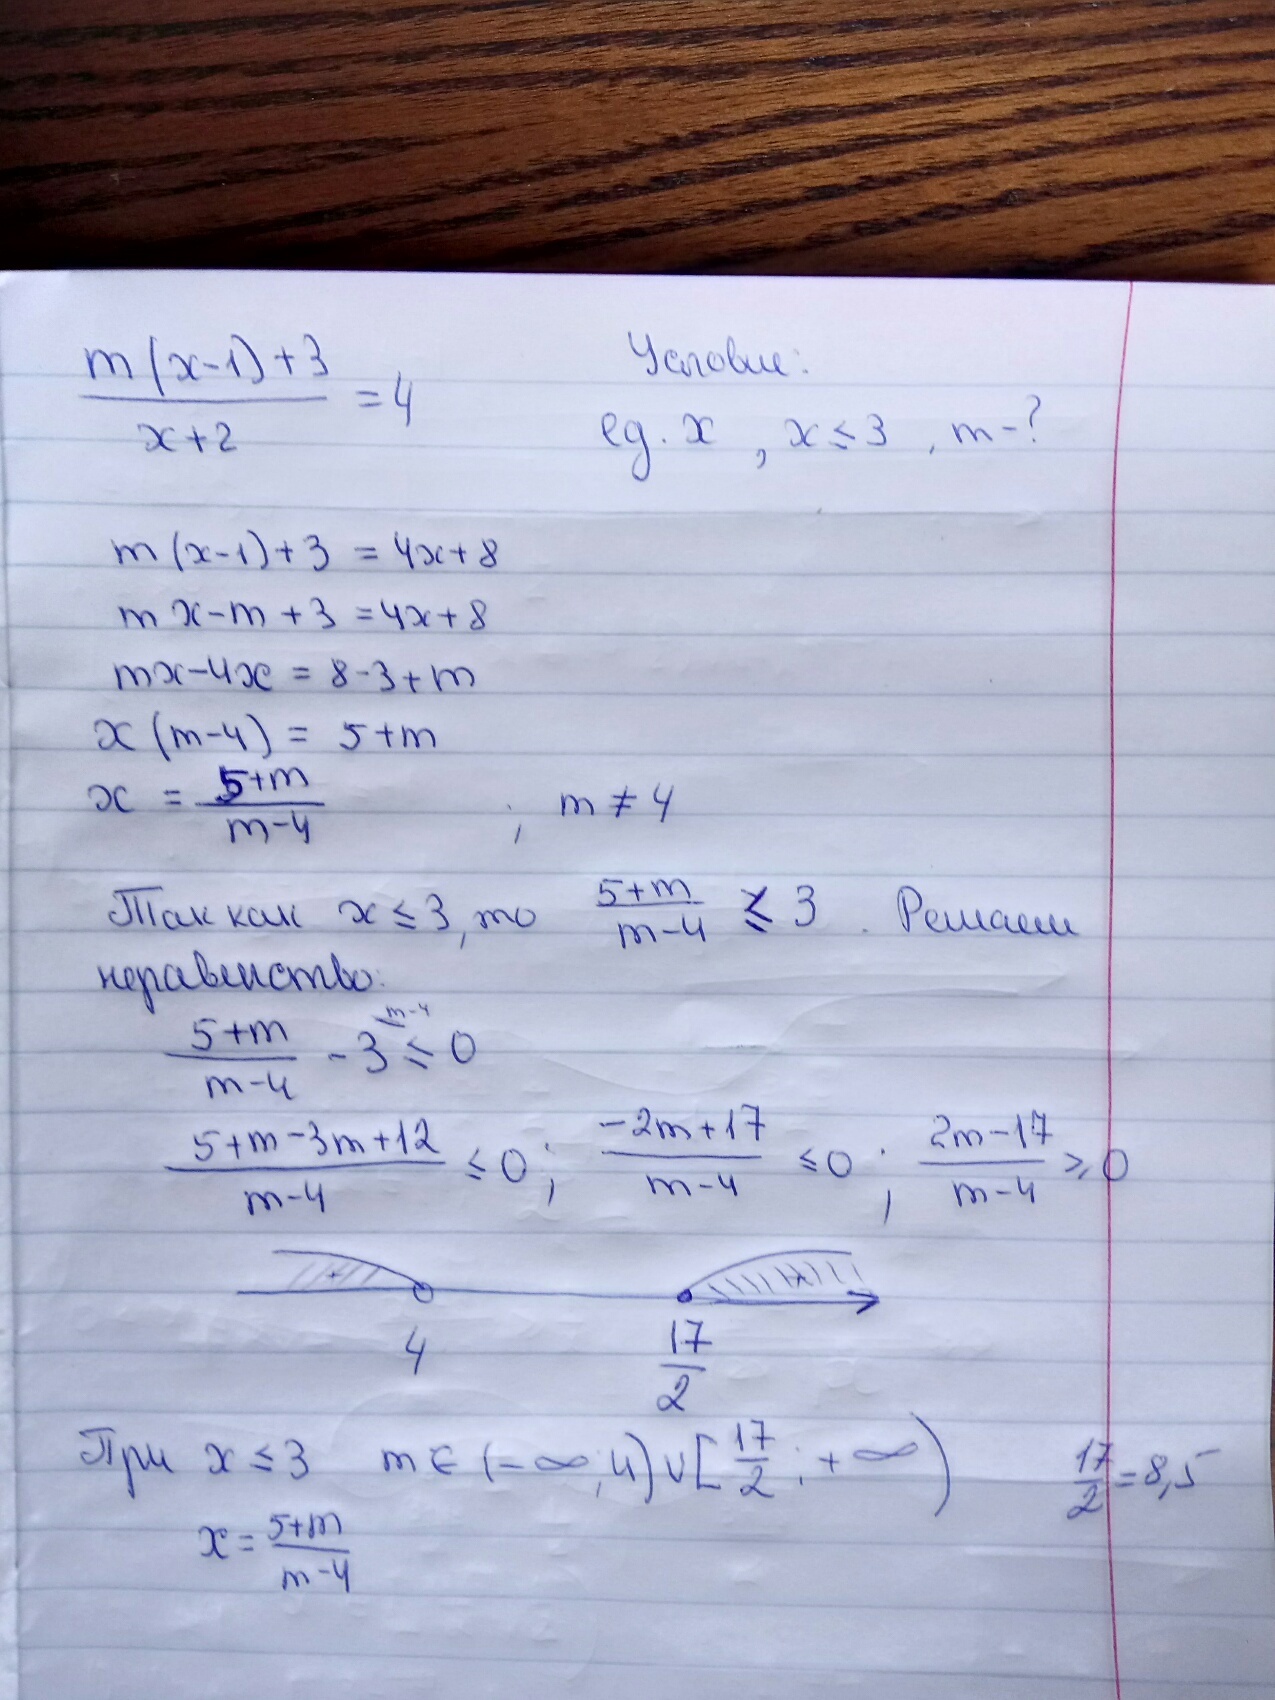 m(x-1)+3 / x+2 = 4
Условие:
ед. x , x ≤ 3 , m - ?
m(x-1)+3 = 4x+8
mx-m+3 = 4x+8
mx-4x = 8-3+m
x(m-4) = 5+m
x = 5+m / m-4 ; m ≠ 4
Так как x ≤ 3, то 5+m / m-4 ≤ 3 . Решаем
неравенство:
5+m / m-4 - 3 m-4 ≤ 0
5+m-3m+12 / m-4 ≤ 0 ; -2m+17 / m-4 ≤ 0 ; 2m-17 / m-4 ≥ 0
+ +
4 17/2
При x ≤ 3 m ∈ (-∞; 4) ∪ [17/2 ; +∞) 17/2 = 8,5
x = 5+m / m-4